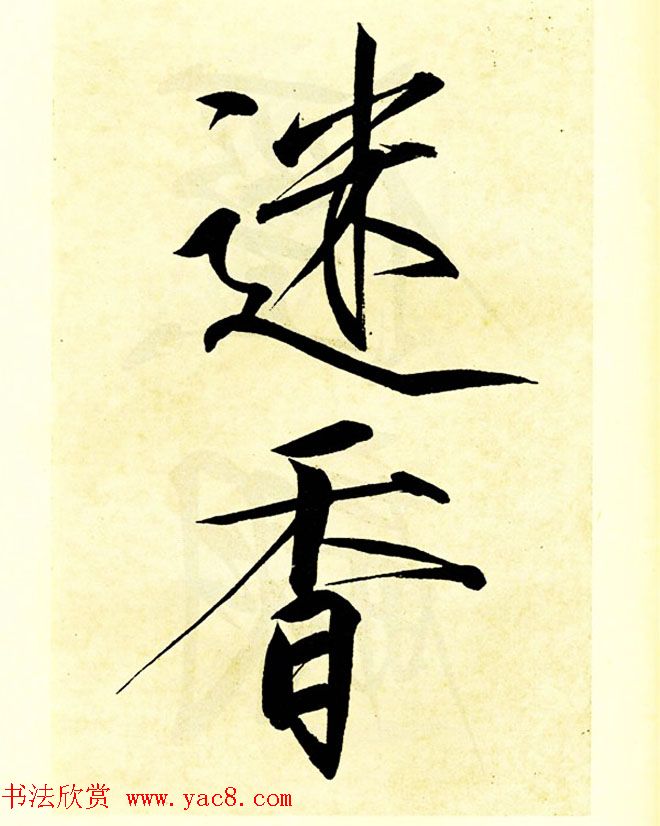 迷
香
书法欣赏 www.yac8.com